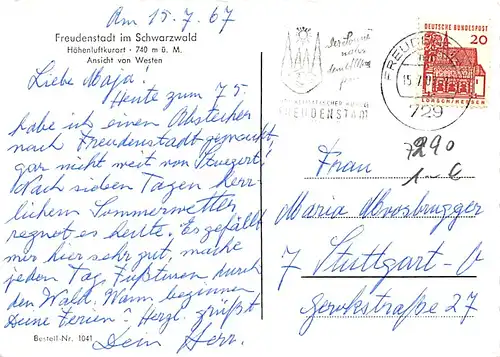 Am 15.7.67
Freudenstadt im Schwarzwald
Höhenluftkurort · 740 m ü. M.
Ansicht von Westen
Liebe Maja!
Heute zum 75.
habe ich einen Abstecher
nach Freudenstadt gemacht,
gar nicht weit von Stuttgart!
Nach sieben Tagen herr-
lichem Sommerwetter
regnet es heute. Es gefällt
mir hier sehr gut, mache
jeden Tag Fußturen durch
den Wald. Wann beginnen
Deine Ferien? Herzl. grüßt
Dein Herr.
Bestell-Nr. 1041
FREUDENSTADT
DEUTSCHE BUNDESPOST
20
LORSCH/HESSEN
FREUDEN
15.7.
729
7290
1-€
Frau
Maria Moosbrugger
7 Stuttgart-O
27